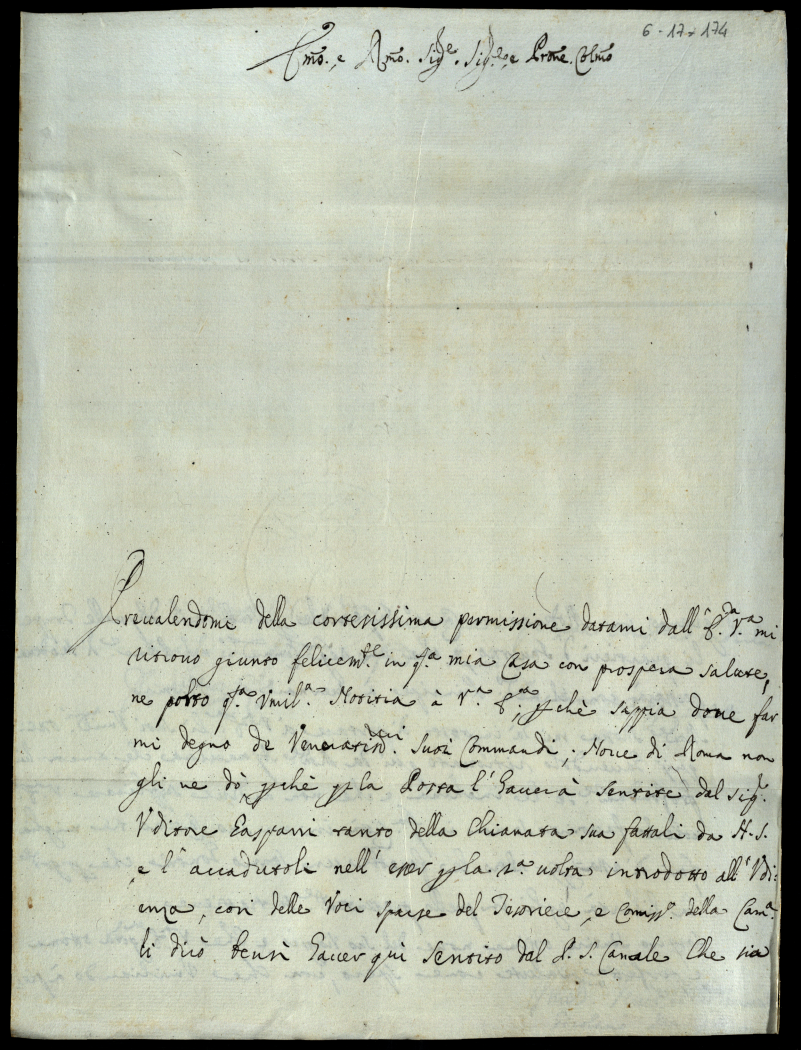 6-17-174
Emo. e Rmo. Sigr. Sigr. e Prone. Colmo
Prevalendomi della cortesissima permissione datami dall' E.da V.a mi
ritrovo giunto felicemte. in q.a mia Casa con prospera salute,
ne porto q.a Umil.a Notizia à V.a E.a; pchè sappia dove far
mi degno de Veneratissmi. suoi Commandi; Nove di Roma non
gli ne dò pchè p la Posta l'haverà sentite dal sigr.
Uditore Gasparri tanto della Chiamata sua fattali da N.S.
e l'accadutoli nell'esser p la 1.a volta introdotto all'Udi:
enza, con delle Voci sparse del Tesoriere, e Comissr. della Cam.a
li dirò bensì haver quì sentito dal P. S. Canale Che sia